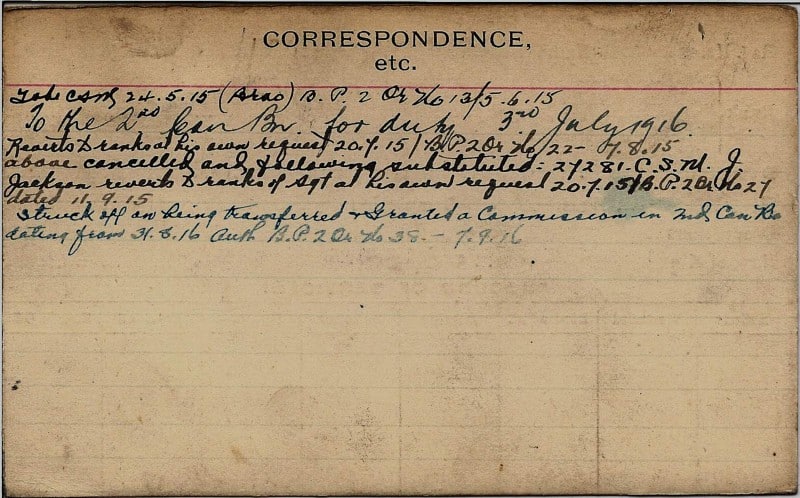 CORRESPONDENCE,
etc.
To be CSM 24.5.15 (Brac) B. P. 2 Or No 13/5.6.15
To the 2nd Can Bn. for duty 3rd July 1916.
Reverts to ranks at his own request 20.7.15 / B.P. 2 Or No 22 - 7.8.15
above cancelled and following substituted:- 27281. C.S.M. J.
Jackson reverts to ranks of Sgt at his own request 20.7.15 / B.P. 2 Or No 27
dated 11.9.15
Struck off on being transferred & Granted a Commission in 2nd Can Bn
dating from 31.8.16 Auth B.P. 2 Or No 38. - 7.9.16